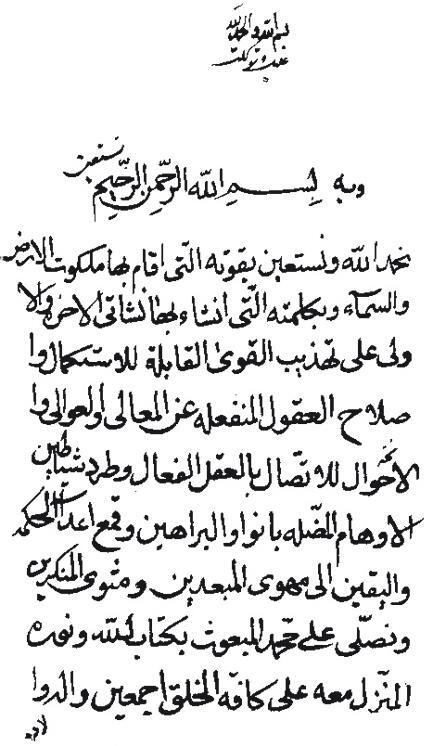 بسم الله و الحمد لله
عليه توكلت
وبه نستعين بسم الله الرحمن الرحيم
نحمد الله ونستعين بقوته التى اقام بها ملكوت الارض
والسمآء وبكلمته الّتى انشاء بها نشاتى الاخرة والا
ولى على تهذيب القوى القابلة للاستكمال وا
صلاح العقول المنفعله عن المعالى والعوالى وا
لاحوال للاتصال بالعقل الفعال وطرد شياطين
الاوهام المضله بانوار البراهين وقمع اعداء الحكمه
واليقين الى مهوى المبعدين ومثوى المتكبرين
ونصلّى على محمد المبعوث بكتاب الله ونوره
المنزل معه على كافه الخلق اجمعين واله وا
لاده